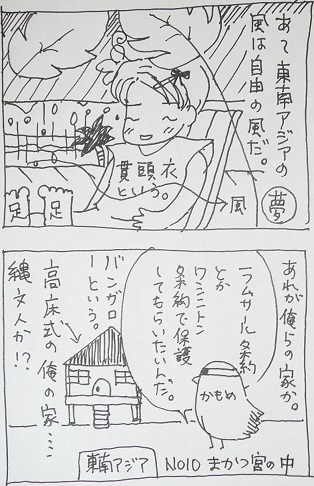 あて東南アジアの
風は自由の風だ。
夢
貫頭衣
という。
風
足
足
あれが俺らの家か。
ラムサール条約
とか
ワシントン
条約で保護
してもらいたいんだ。
かもめ
バンガロ
ーという。
高床式の俺の家……
縄文人か!?
東南アジア
NO10 まかつ宮の中